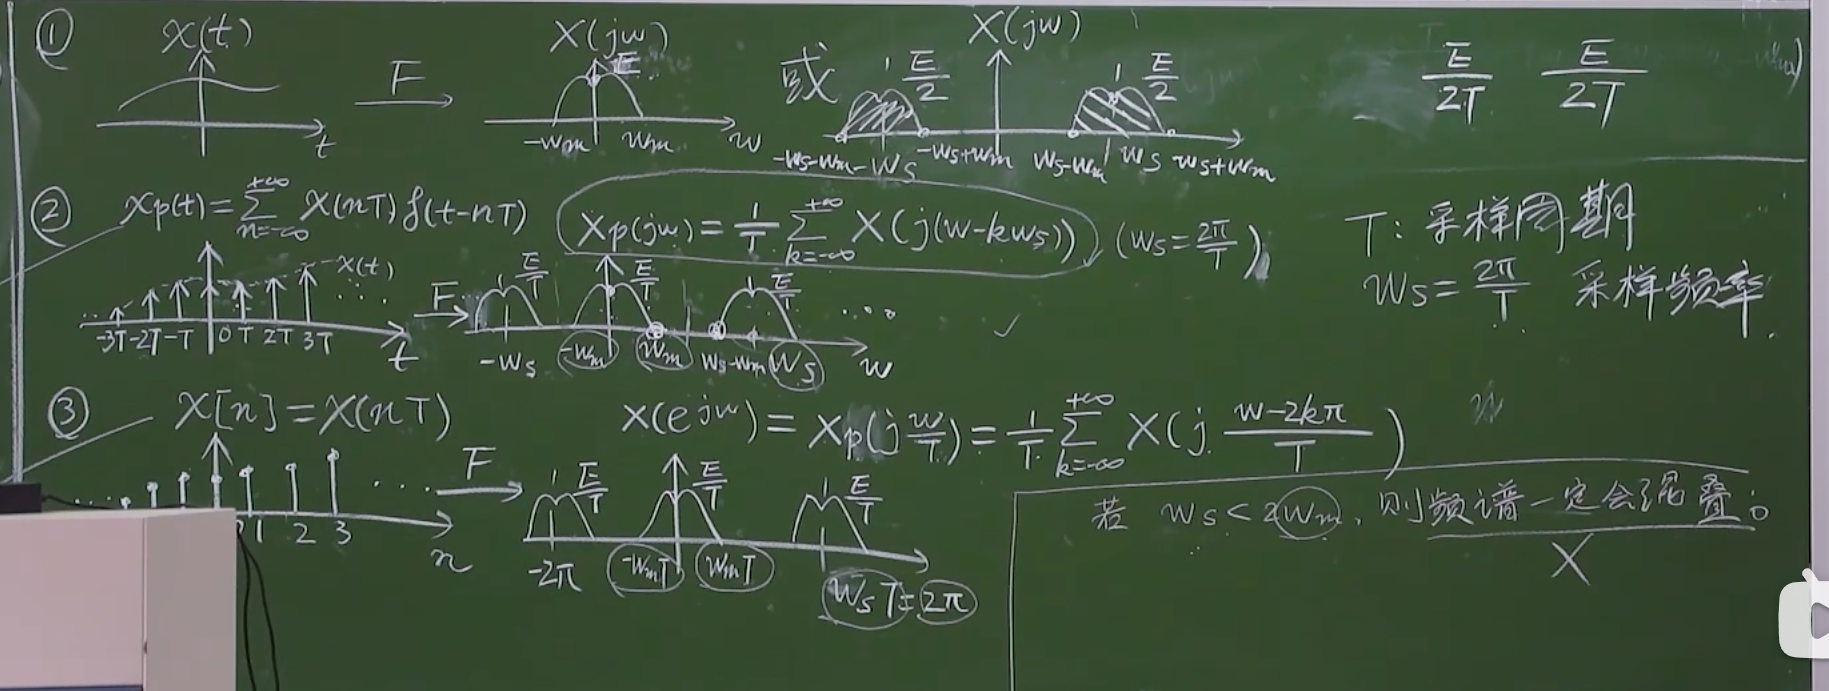 ① x(t) F X(jw) E -wm wm w t
或 X(jw) E/2 E/2 -ws-wm -ws -ws+wm ws-wm ws ws+wm
E/2T E/2T
② xp(t)=∑_{n=-∞}^{+∞} x(nT)δ(t-nT) Xp(jw)=1/T ∑_{k=-∞}^{+∞} X(j(w-kws)) (ws=2π/T)
T: 采样周期
ws=2π/T 采样频率.
x(t) ... -3T -2T -T 0 T 2T 3T ... t F E/T E/T E/T ... -ws -wm wm ws-wm ws w
③ x[n]=x(nT) X(e^{jw})=Xp(j w/T)=1/T ∑_{k=-∞}^{+∞} X(j (w-2kπ)/T)
... 1 2 3 ... n F E/T E/T E/T -2π -wmT wmT wsT=2π
若 ws<2wm, 则频谱一定会混叠。
X